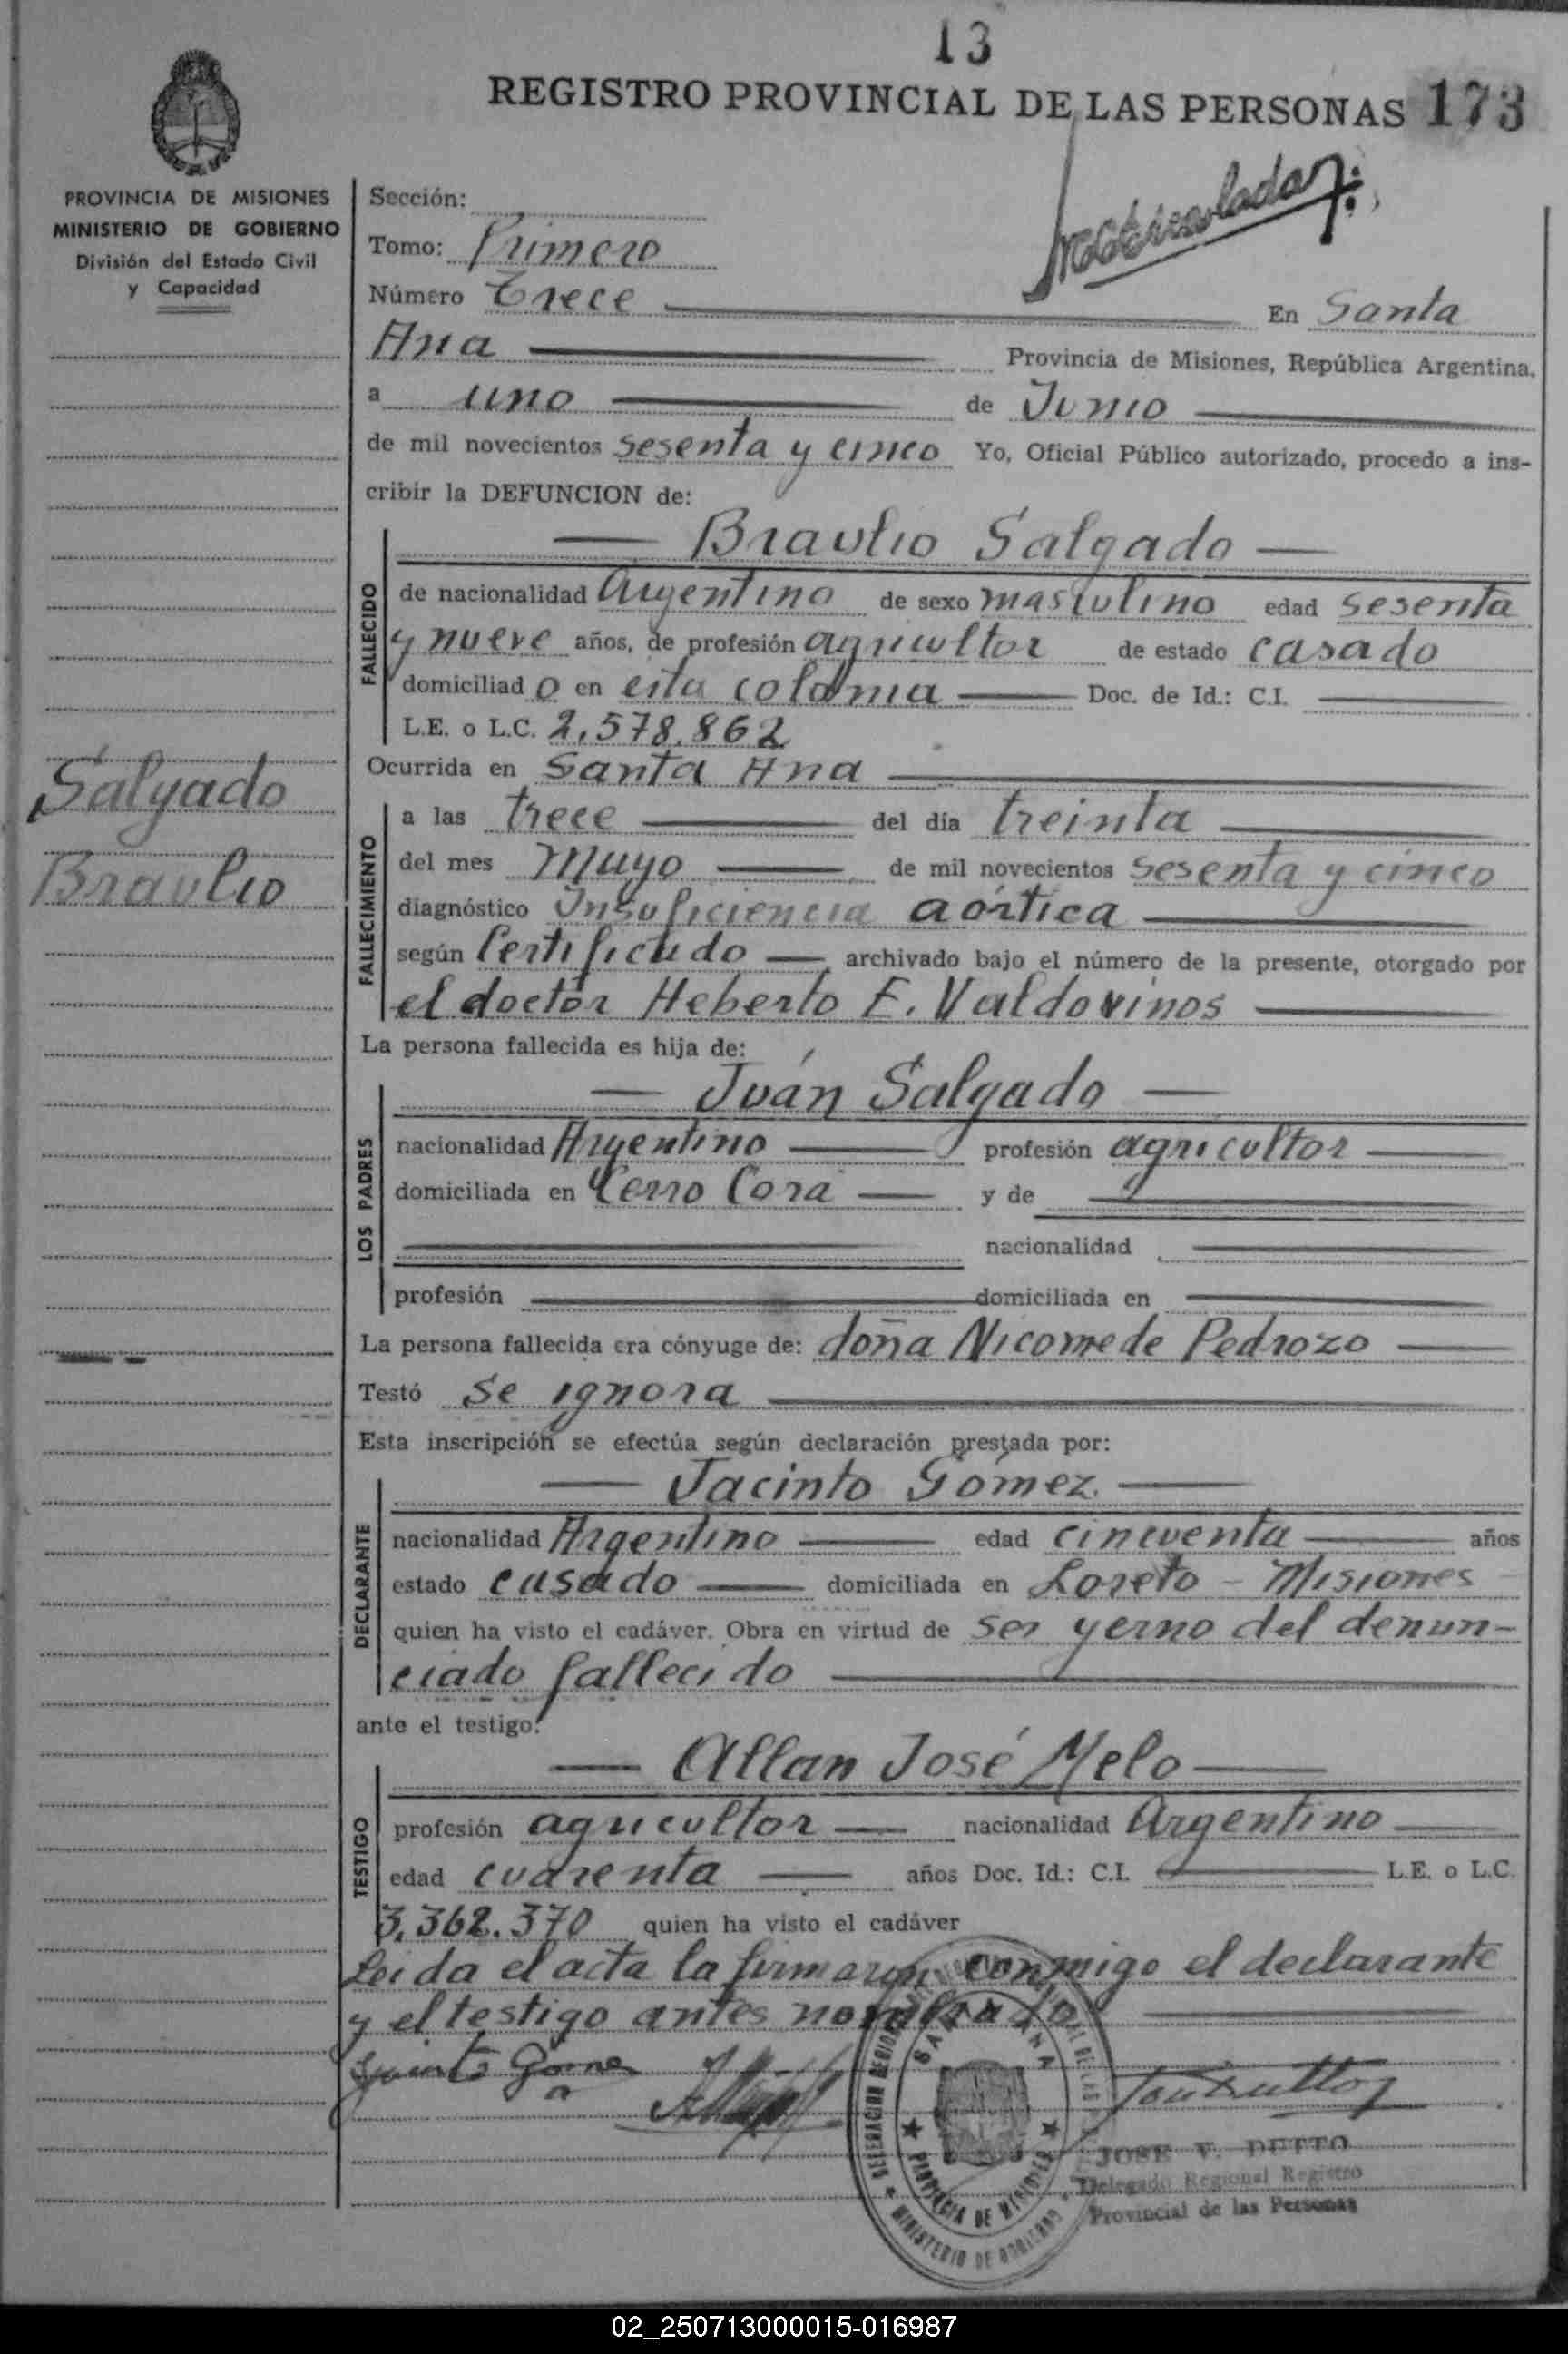 13
REGISTRO PROVINCIAL DE LAS PERSONAS 173
PROVINCIA DE MISIONES
MINISTERIO DE GOBIERNO
División del Estado Civil
y Capacidad
Sección:
Tomo: Primero
Número Trece En Santa
Ana Provincia de Misiones, República Argentina.
a uno de Junio
de mil novecientos sesenta y cinco Yo, Oficial Público autorizado, procedo a ins-
cribir la DEFUNCION de:
Braulio Salgado
FALLECIDO
de nacionalidad Argentino de sexo masculino edad sesenta
y nueve años, de profesión agricultor de estado casado
domiciliad o en esta colonia Doc. de Id.: C.I.
L.E. o L.C. 2.578.862
Ocurrida en Santa Ana
Salgado
Braulio
FALLECIMIENTO
a las trece del día treinta
del mes Mayo de mil novecientos sesenta y cinco
diagnóstico Insuficiencia aórtica
según Certificado archivado bajo el número de la presente, otorgado por
el doctor Heberto E. Valdovinos
La persona fallecida es hija de:
Juán Salgado
LOS PADRES
nacionalidad Argentino profesión agricultor
domiciliada en Cerro Corá y de
nacionalidad
profesión domiciliada en
La persona fallecida era cónyuge de: doña Nicomede Pedrozo
Testó se ignora
Esta inscripción se efectúa según declaración prestada por:
Jacinto Gómez.
DECLARANTE
nacionalidad Argentino edad cincuenta años
estado casado domiciliada en Loreto - Misiones
quien ha visto el cadáver. Obra en virtud de ser yerno del denun-
ciado fallecido
ante el testigo:
Allan José Melo
TESTIGO
profesión agricultor nacionalidad Argentino
edad cuarenta años Doc. Id.: C.I. L.E. o L.C.
3.362.370 quien ha visto el cadáver
Leida el acta la firmaron conmigo el declarante
y el testigo antes nombrado
SANTA ANA
PROVINCIA DE MISIONES
MINISTERIO DE GOBIERNO
JOSE V. DUTTO
Delegado Regional Registro
Provincial de las Personas
02_250713000015-016987